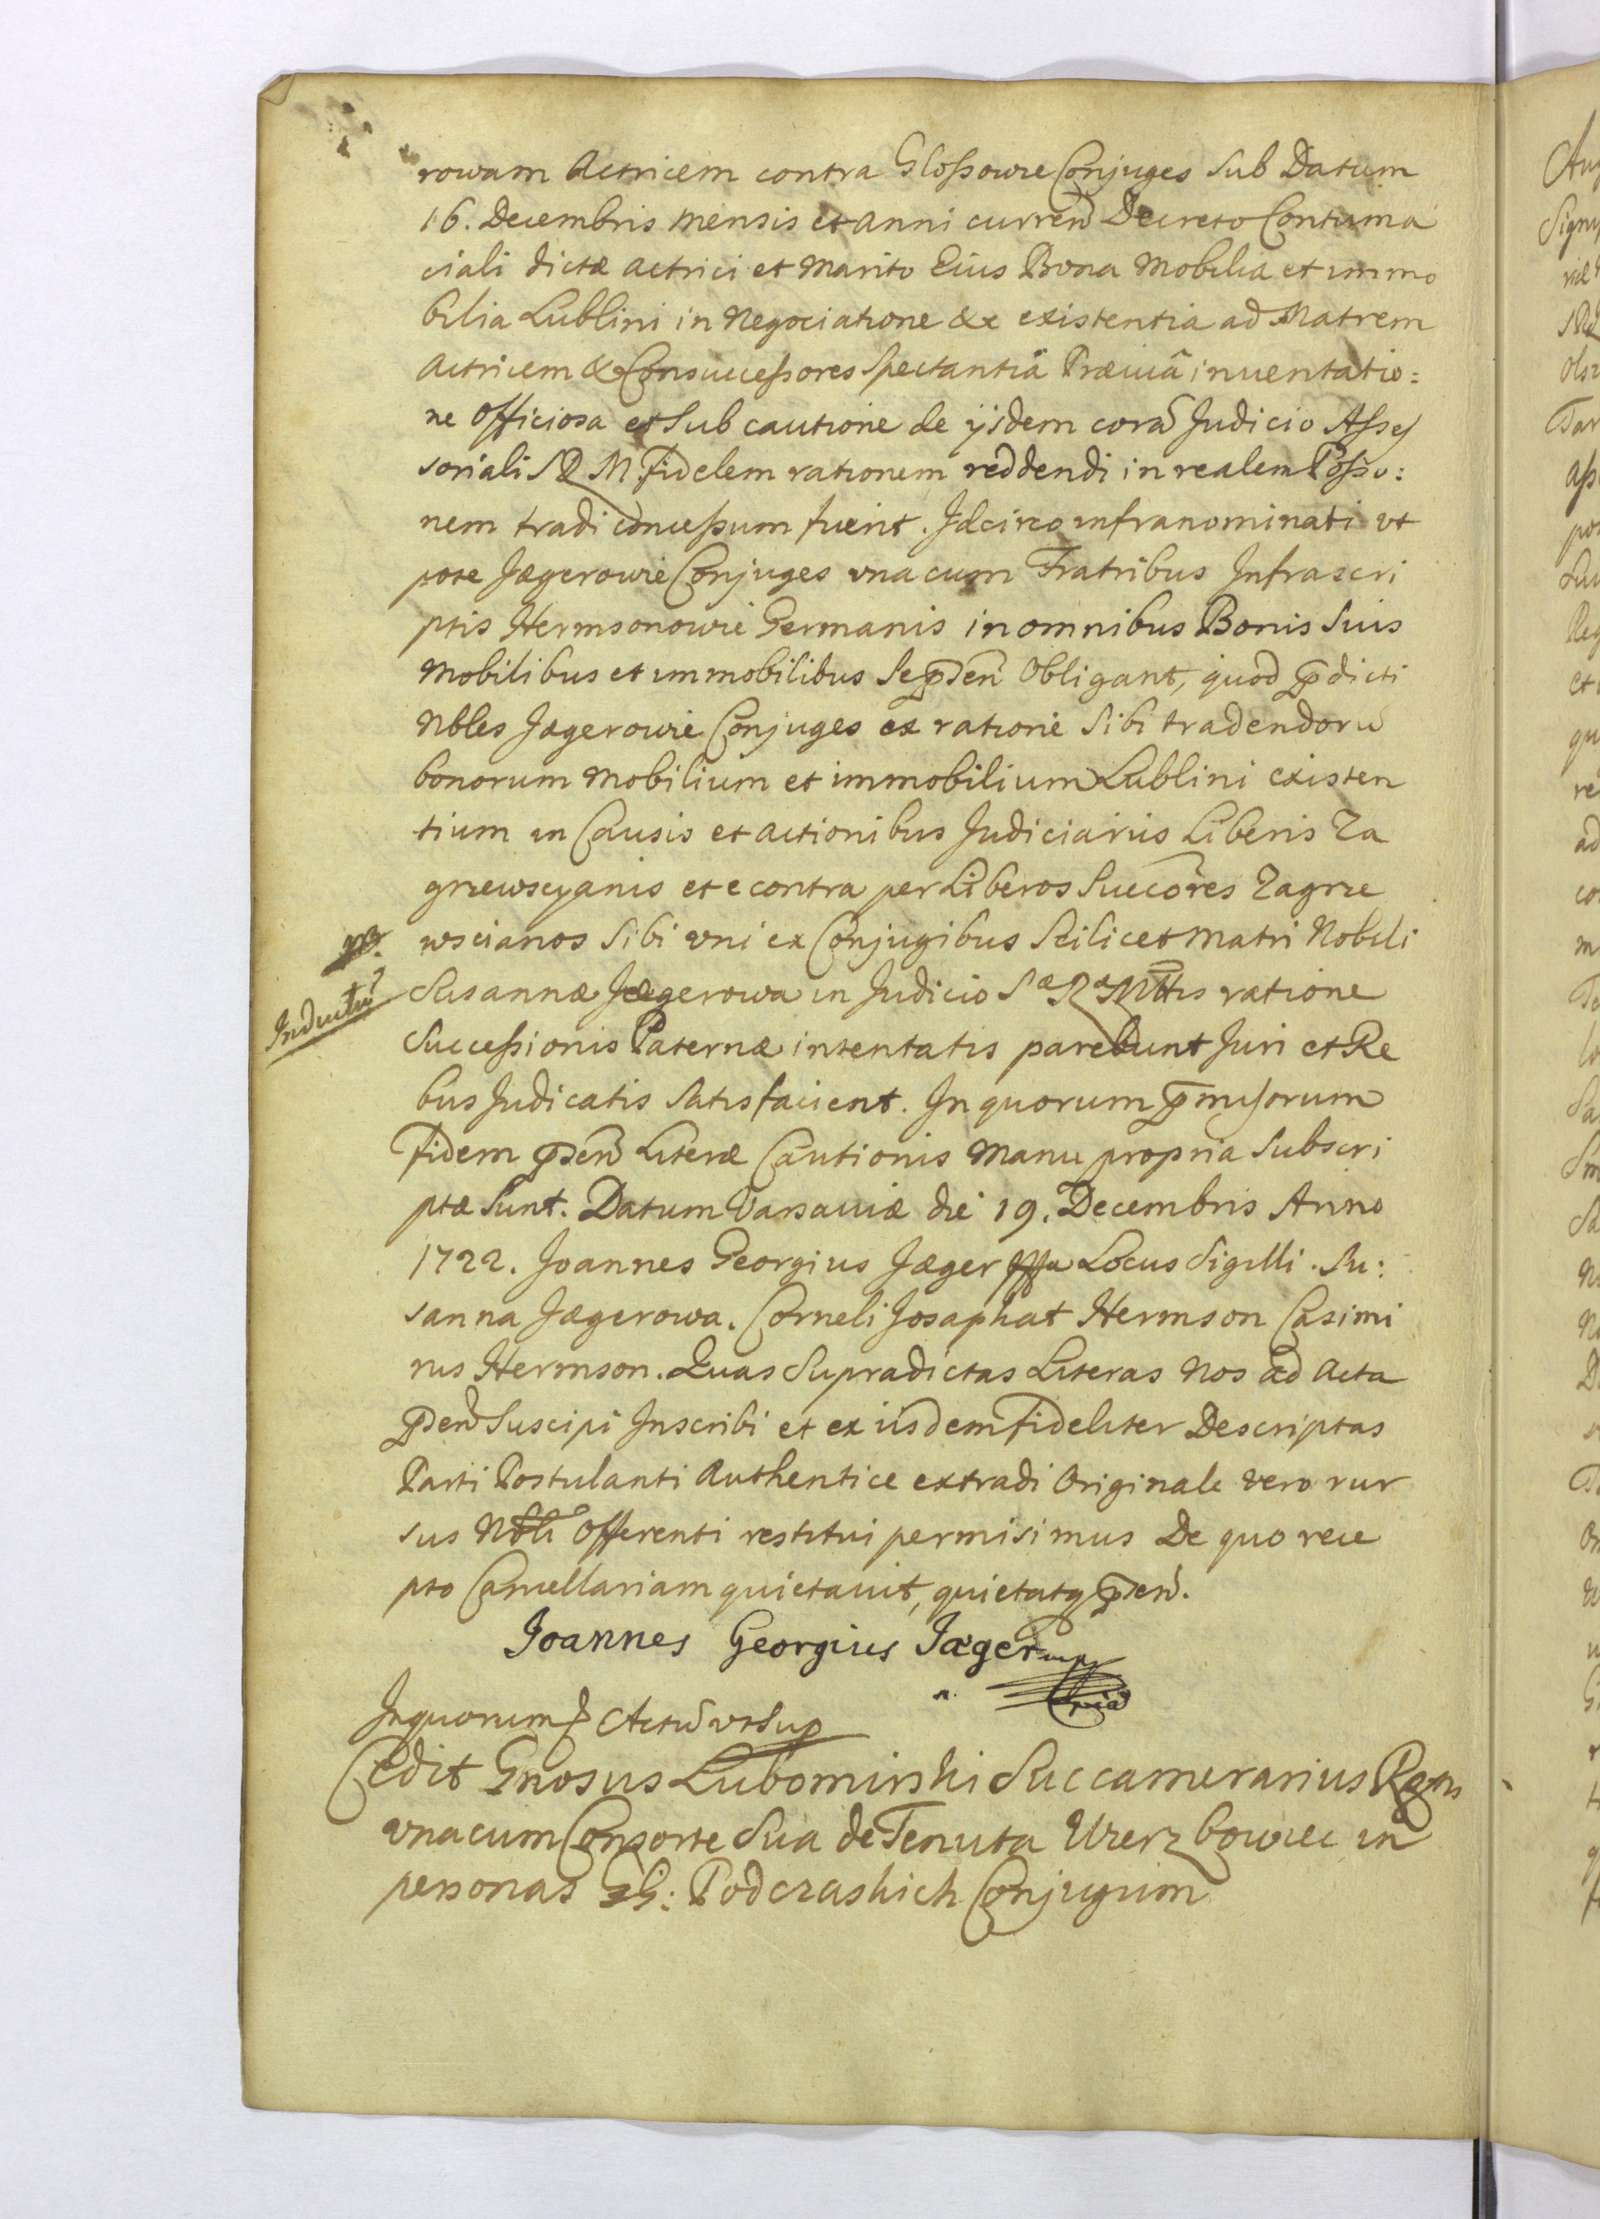 rowam Actricem contra Glossowie Conjuges Sub Datum
16. Decembris mensis et anni curreñ Decreto Contuma
ciali dictæ actrici et Marito Eius Bona Mobilia et immo
bilia Lublini in Negociatione &c existentia ad Matrem
Actricem & Consuccessores Spectantiã Præviâ inventatio:
ne Officiosa et Sub cautione de ijsdem corã Judicio Asses
soriali S R M Fidelem rationem reddendi in realem Posso:
nem tradi concessum fuerit. Idcirco infranominati ut
pote Jægerowie Conjuges una cum Fratribus Infrascri
ptis Hermsonowie Germanis in omnibus Bonis Suis
Mobilibus et immobilibus Se p̄sen Obligant, quod p̄dicti
Nbles Jægerowie Conjuges ex ratione Sibi tradendorũ
bonorum Mobilium et immobilium Lublini existen
tium in Causis et actionibus Judiciariis Liberis Za
grzewscyanis et e contra per Liberos Succõres Zagrze
wscianos Sibi uni ex Conjugibus Scilicet Matri Nobili
Inductũ
Susannæ Jægerowa in Judicio Sæ Ræ Mttis ratione
Successionis Paternæ intentatis parebunt Juri et Re
bus Judicatis Satisfacient. In quorum p̄misorum
Fidem p̄sen Literæ Cautionis Manu propria Subscri
ptæ Sunt. Datum Varsaviæ die 19. Decembris Anno
1722. Joannes Georgius Jæger Locus Sigilli. Su:
sanna Jægerowa. Corneli Josaphat Hermson Casimi
rus Hermson. Quas Supradictas Literas Nos ad Acta
p̄sen Suscipi Inscribi et ex iisdem Fideliter Descriptas
Parti Postulanti Authentice extradi Originale vero rur
sus Nbli Offerenti restitui permisimus De quo rece
pto Cancellariam quietavit, quietatq p̄sen.
Joannes Georgius Jæger mpp
In quorum Actũ ut Sup
Cedit Gnosus Lubomirski Succamerarius Rgni
una cum Consorte Sua de Tenuta Wierzbowiec in
personas GG: Podczaskich Conjugum